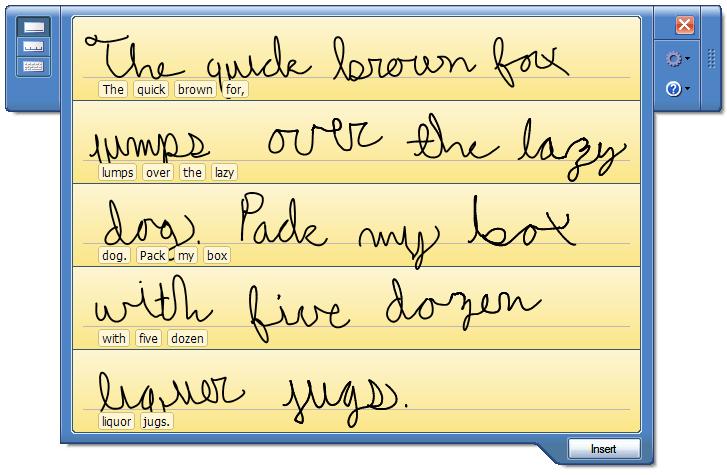 The quick brown fox
The quick brown for,
jumps over the lazy
lumps over the lazy
dog. Pack my box
dog. Pack my box
with five dozen
with five dozen
liquer jugs.
liquor jugs.
Insert